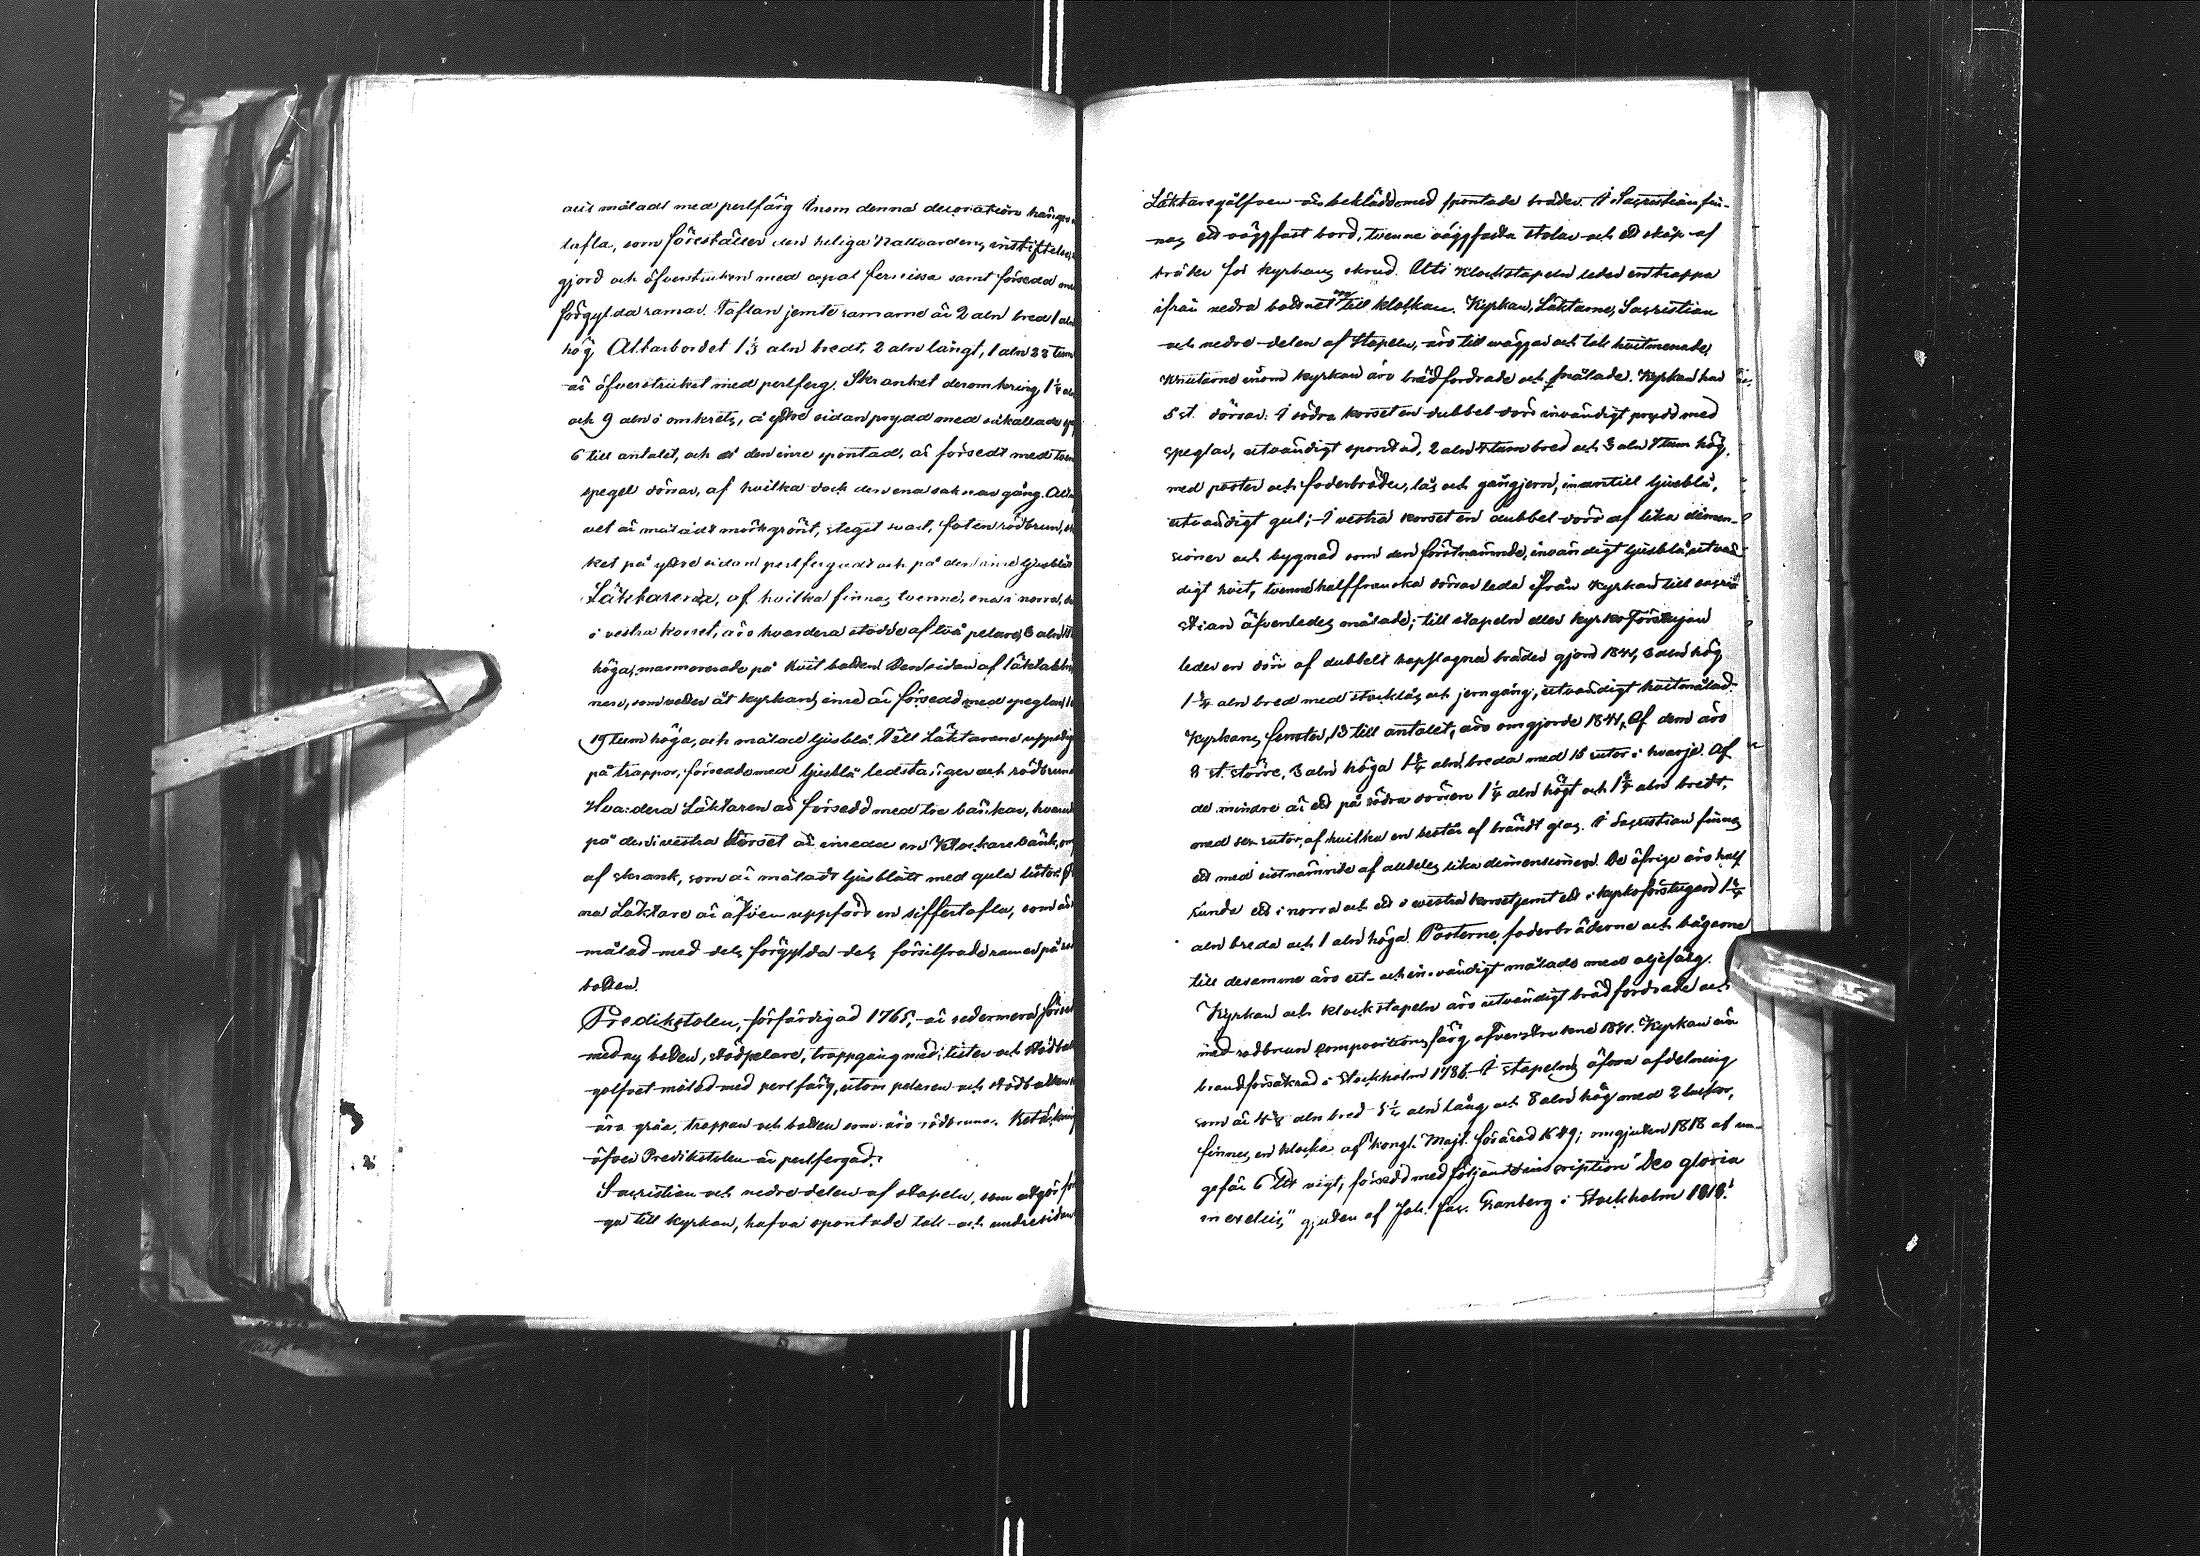 måladt med perlfärg Inom denna decoration hänger
tafla, som föreställer den heliga Nattvardens instiftelse,
gjord och öfverstruken med copal fernissa samt försedd
förgylda ramar. Taflan jemte ramarne är 2 aln bred 1 aln
hög. Altarbordet 1⅓ aln bredt, 2 aln långt, 1 aln tum
är öfverstruket med perlferg. Skranket deromkring, 1¼
och 9 aln i omkrets, å yttre sidan prydd med så kallade
6 till antalet, och å den inre spontad, är försedt med
spegel dörrar, af hvilka dock den ena saknar gång.
vet är måladt mörkgrönt, steget svart, foten rödbrun,
ket på yttre sidan perlfergadt och på den inre ljusblått
Läktarena, af hvilka finnas tvenne, ena i norra,
i vestra korset, äro hvardera stödde af två pelare, 3 aln
höga, marmorerade på hvit botten. Den sidan af läktar
ne, som vetter åt kyrkans inre är försedd med speglar,
19 tum höga, och målad ljusblå. Till Läktarene uppstiges
på trappor, försedde med ljusblå ledstänger och rödbruna
Hvardera Läktaren är försedd med tre bänkar, hvarest
på den i vestra Korset är inredd en Klockare bänk,
af skrank, som är måladt ljusblått med gula lister.
na Läktare är äfven uppförd en siffertafla, som är
målad med dels förgylda dels försilfrade ramar på
botten.
Predikstolen, förfärdigad 1765, är sedermera försedd
med ny botten, stödpelare, trappgång med lister och
golfvet målad med perlfärg, utom pelaren och stödbalken
äro gråa, trappan och botten som äro rödbruna.
öfver Predikstolen är perlfergad.
Sacristian och nedre delen af stapeln, som utgör
ga till kyrkan, hafva spontade tak och undre sidan
Läktaregolfven är beklädd med spontade bräder. I Sacristian fin-
nas ett väggfast bord, tvenne väggfasta stolar och ett skåp af
bräder för kyrkans skrud. Uti Klockstapeln leder en trappa
ifrån nedra bottnet upp till klockan. Kyrkan, Läktarne, Sacristian
och nedre delen af Stapeln, äro till väggar och tak hvitmenade,
Knutarne inom kyrkan äro brädfordrade och målade. Kyrkan har
5 st. dörrar. I södra korset en dubbel dörr invändigt prydd med
speglar, utvändigt spontad, 2 aln 4 tum bred och 3 aln 1 tum hög,
med poster och foderbräder, lås och gångjern, innantill ljusblå,
utvändigt gul; I vestra korset en dubbel dörr af lika dimen-
sioner och bygnad som den förstnämnde, invändigt ljusblå, utvän
digt hvit, tvenne half franska dörrar leda ifrån Kyrkan till sacri
stian äfvenledes målade; till stapeln eller kyrkoförstugan
leder en dörr af dubbelt hopslagna bräder gjord 1841, 3 aln hög
1¾ aln bred med stocklås och jerngång, utvändigt hvitmålad.
Kyrkans fenster, 13 till antalet, äro omgjorde 1841. Af dem äro
8 st. större, 3 aln höga 1¾ aln breda med 15 rutor i hvarje. Af
de mindre är ett på södra dörren 1¼ aln högt och 1¾ aln bredt,
med sex rutor, af hvilka en består af brändt glas. I Sacristian finnes
ett med sistnämnde af alldeles lika dimensioner. De öfriga äro half
runda ett i norra och ett i vestra korset jemt ett i kyrkoförstugan 1¾
aln breda och 1 aln höga. Posterne, foderbräderne och bågarne
till desamme äro ut- och invändigt målade med oljefärg.
Kyrkan och klockstapeln äro utvändigt brädfordrade och
med rödbrun compositions färg öfverstrukne 1841. Kyrkan är
brandförsäkrad i Stockholm 1786. I stapelns öfvra afdelning
som är aln bred 5½ aln lång och 8 aln hög med 2 luckor,
finnes en klocka af kongl. Majt. förärad 1649; omgjuten 1818 af un-
gefär 6 vigt, försedd med följande inscription "Deo gloria
in excelsis," gjuten af Joh. Granberg i Stockholm 1818.